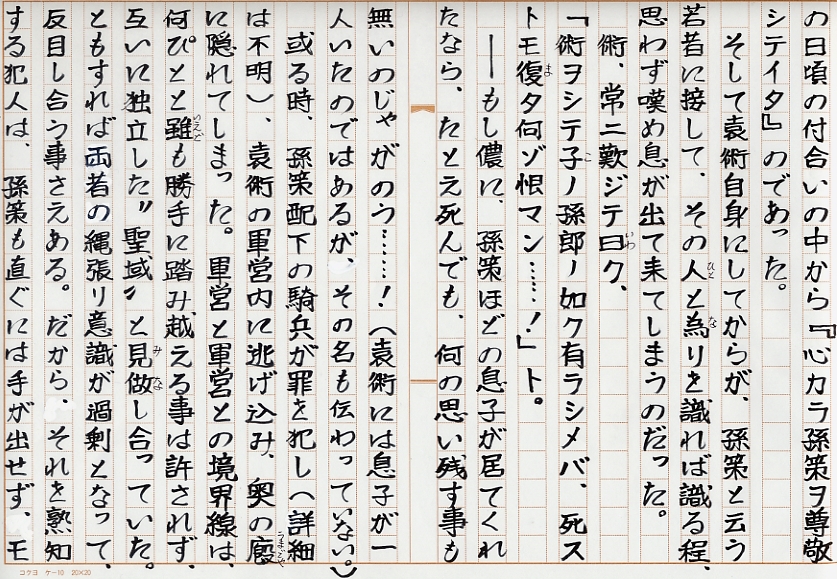 の日頃の付合いの中から『心カラ孫策ヲ尊敬
シテイタ』のであった。
そして袁術自身にしてからが、孫策と云う
若者に接して、その人と為りを識れば識る程、
ひと
な
思わず嘆め息が出て来てしまうのだった。
術、常ニ歎ジテ曰ク、
いわ
「術ヲシテ子ノ孫郎ノ如ク有ラシメバ、死ス
こ
トモ復タ何ゾ恨マン……!」ト。
ま
──もし儂に、孫策ほどの息子が居てくれ
たなら、たとえ死んでも、何の思い残す事も
無いのじゃがのう……!(袁術には息子が一
人いたのではあるが、その名も伝わっていない。)
或る時、孫策配下の騎兵が罪を犯し(詳細
は不明)、袁術の軍営内に逃げ込み、奥の廏
うまや
に隠れてしまった。軍営と軍営との境界線は、
何ぴとと雖も勝手に踏み越える事は許されず、
いえど
互いに独立した〝聖域〟と見做し合っていた。
み な
ともすれば両者の縄張り意識が過剰となって、
反目し合う事さえある。だから、それを熟知
する犯人は、孫策も直ぐには手が出せず、モ
コクヨ ケ-10 20×20